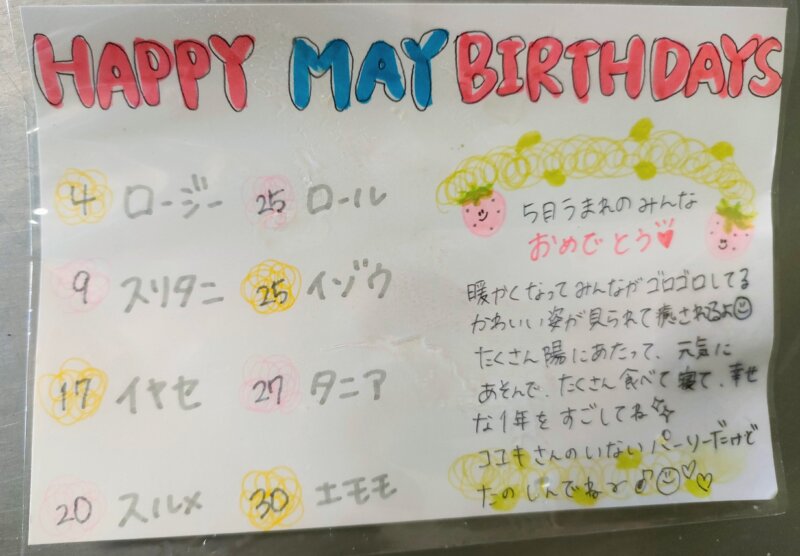 HAPPY MAY BIRTHDAYS
4 ロージー
9 スリタニ
17 イヤセ
20 スルメ
25 ロール
25 イゾウ
27 タニア
30 エモモ
5月うまれのみんな
おめでとう♥
暖かくなってみんながゴロゴロしてる
かわいい姿が見られて癒されるよ☺
たくさん陽にあたって、元気に
あそんで、たくさん食べて寝て、幸せ
な1年をすごしてね☆
コユキさんのいないパーリーだけど
たのしんでね〜♪☺♡♡